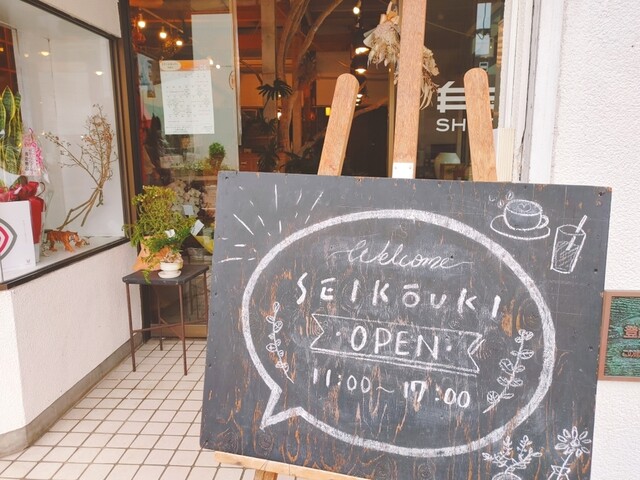 Welcome
SEIKŌUKI
OPEN
11:00~17:00
SH